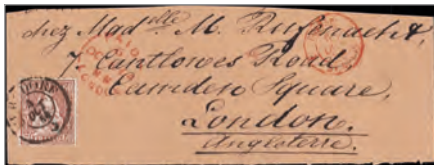 chez Mad^elle M. Rufenacht,
7. Cantlowes Road
Camden Square,
London.
Angleterre.